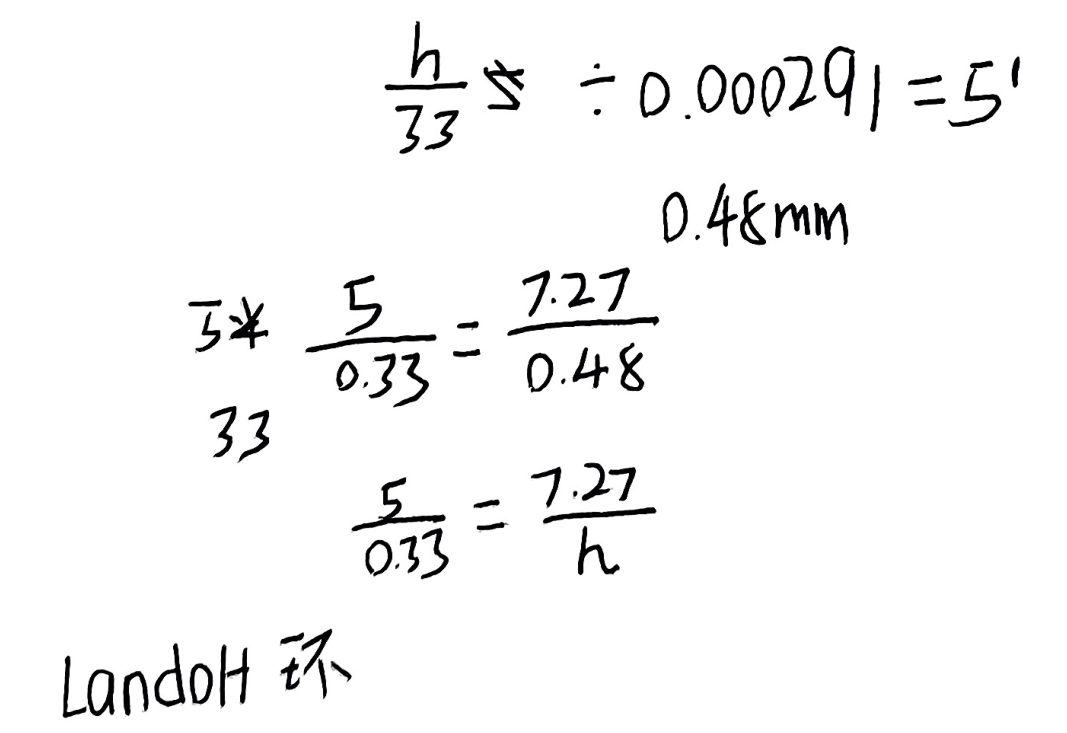 h/33 ÷ 0.000291 = 5'
0.48mm
5米 5/0.33 = 7.27/0.48
33
5/0.33 = 7.27/h
Landolt 环